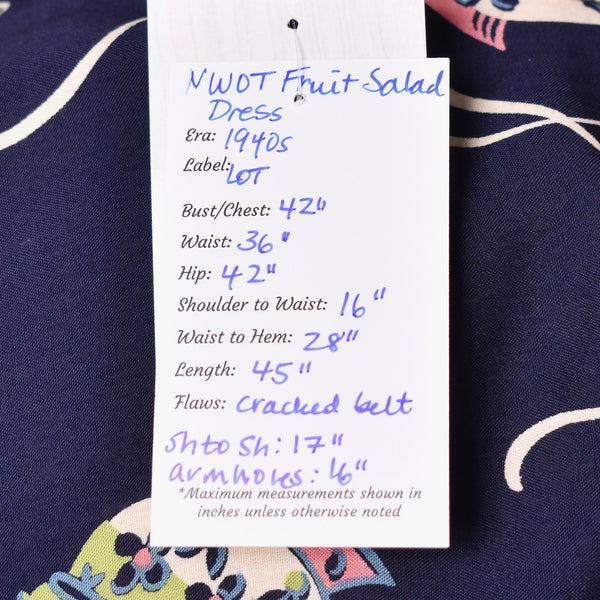 NWOT Fruit Salad
Dress
Era: 1940s
Label: LOT
Bust/Chest: 42"
Waist: 36"
Hip: 42"
Shoulder to Waist: 16"
Waist to Hem: 28"
Length: 45"
Flaws: cracked belt
sh to sh: 17"
armholes: 16"
*Maximum measurements shown in
inches unless otherwise noted